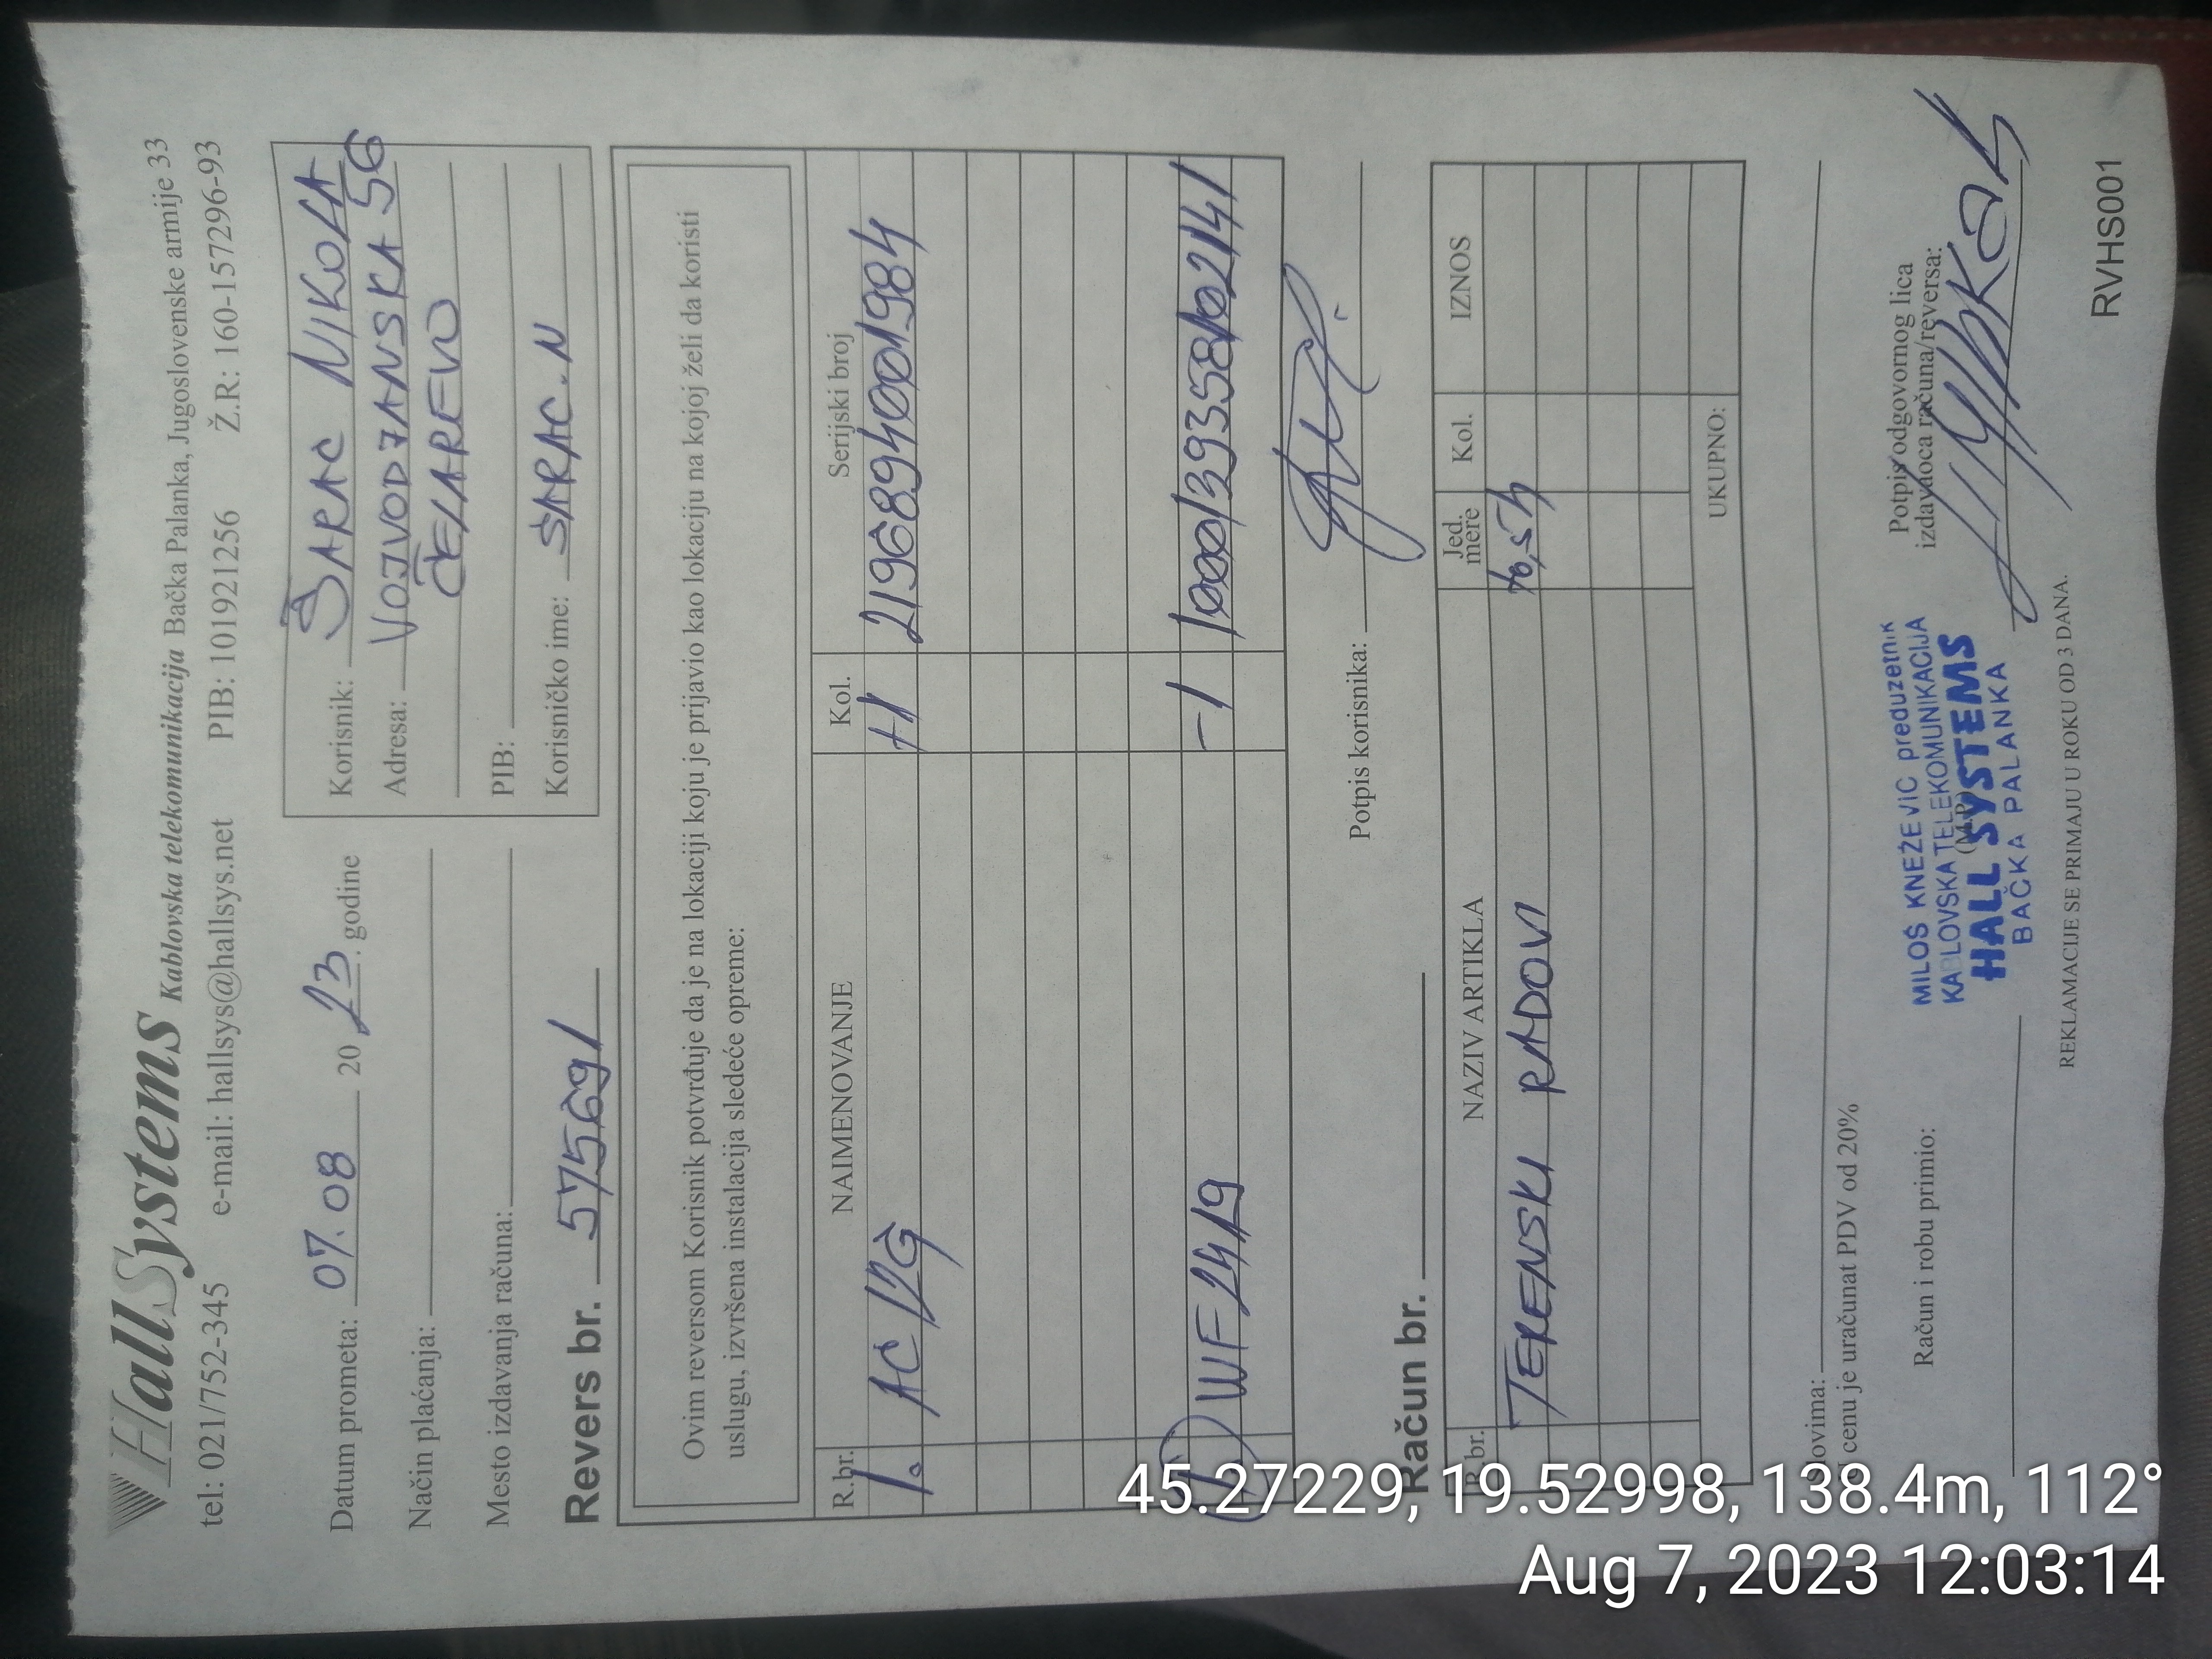 HallSystems Kablovska telekomunikacija Bačka Palanka, Jugoslovenske armije 33
tel: 021/752-345 e-mail: hallsys@hallsys.net PIB: 101921256 Ž.R: 160-157296-93
Datum prometa: 07.08 2023. godine
Način plaćanja:
Mesto izdavanja računa:
Korisnik: ŠARAC NIKOLA
Adresa: VOJVODJANSKA 56
ČELAREVO
PIB:
Korisničko ime: SARAC.N
Revers br. 575691
Ovim reversom Korisnik potvrđuje da je na lokaciji koju je prijavio kao lokaciju na kojoj želi da koristi
uslugu, izvršena instalacija sledeće opreme:
R.br. NAIMENOVANJE Kol. Serijski broj
1. AC 12G +1 2196894001984
1. WF2419 -1 1000139358102141
Potpis korisnika:
Račun br.
R. br. NAZIV ARTIKLA Jed. mere Kol. IZNOS
TERENSKI RADOVI
UKUPNO:
Slovima:
U cenu je uračunat PDV od 20%
Račun i robu primio:
(M.P.)
MILOŠ KNEŽEVIĆ preduzetnik
KABLOVSKA TELEKOMUNIKACIJA
HALL SYSTEMS
BAČKA PALANKA
Potpis odgovornog lica
izdavaoca računa/reversa:
REKLAMACIJE SE PRIMAJU U ROKU OD 3 DANA.
RVHS001
45.27229, 19.52998, 138.4m, 112°
Aug 7, 2023 12:03:14